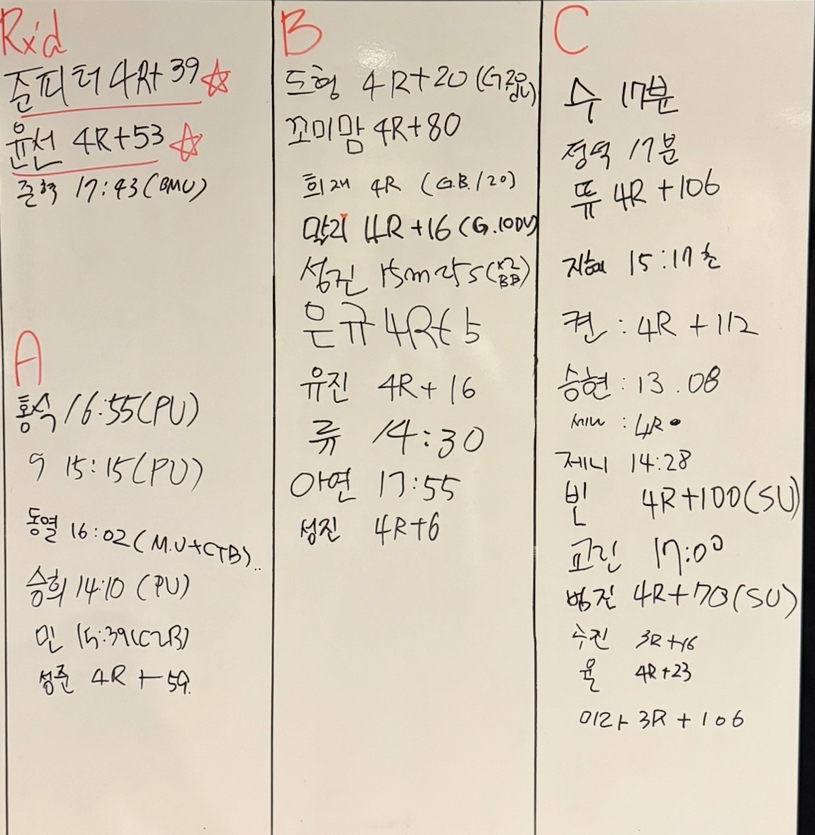 Rx'd
준피터 4R+39 ☆
윤선 4R+53 ☆
준혁 17:43(BMU)
A
홍식 16:55(PU)
9 15:15(PU)
동열 16:02(M.U+CTB)..
승희 14:10 (PU)
민 15:39(C2B)
성준 4R+59
B
도형 4R+20(G
꼬미맘 4R+80
희재 4R (G.B./20)
말괴 4R+16(G.10DU)
성진 15m25s(x2 BB)
은규 4R+5
유진 4R+16
류 14:30
아연 17:55
성진 4R+6
C
수 17분
정덕 17분
뜌 4R+106
지혜 15:17초
켠 : 4R + 112
승현 : 13.08
세나 : 4R
제니 14:28
빈 4R+100(SU)
교린 17:00
병진 4R+70(SU)
수진 3R+16
율 4R+23
미라 3R+106